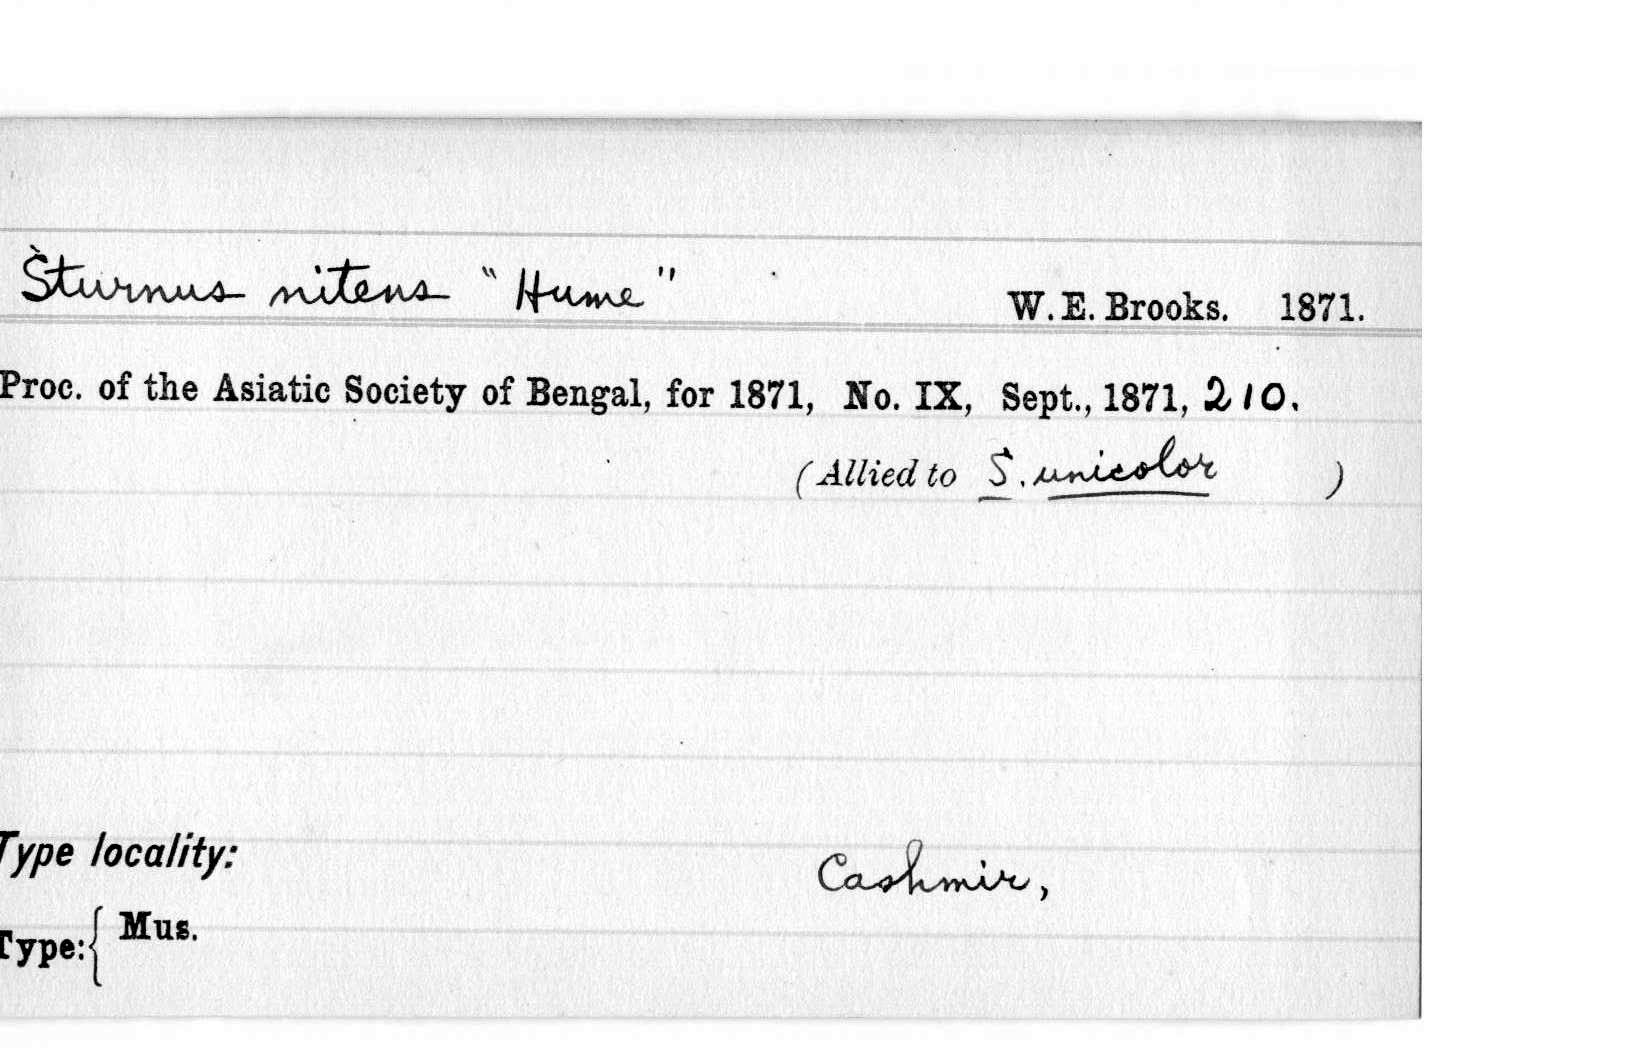 Sturnus nitens "Hume" W. E. Brooks. 1871.
Proc. of the Asiatic Society of Bengal, for 1871, No. IX, Sept., 1871, 210.
(Allied to S. unicolor )
Type locality: Cashmir,
Type: { Mus.